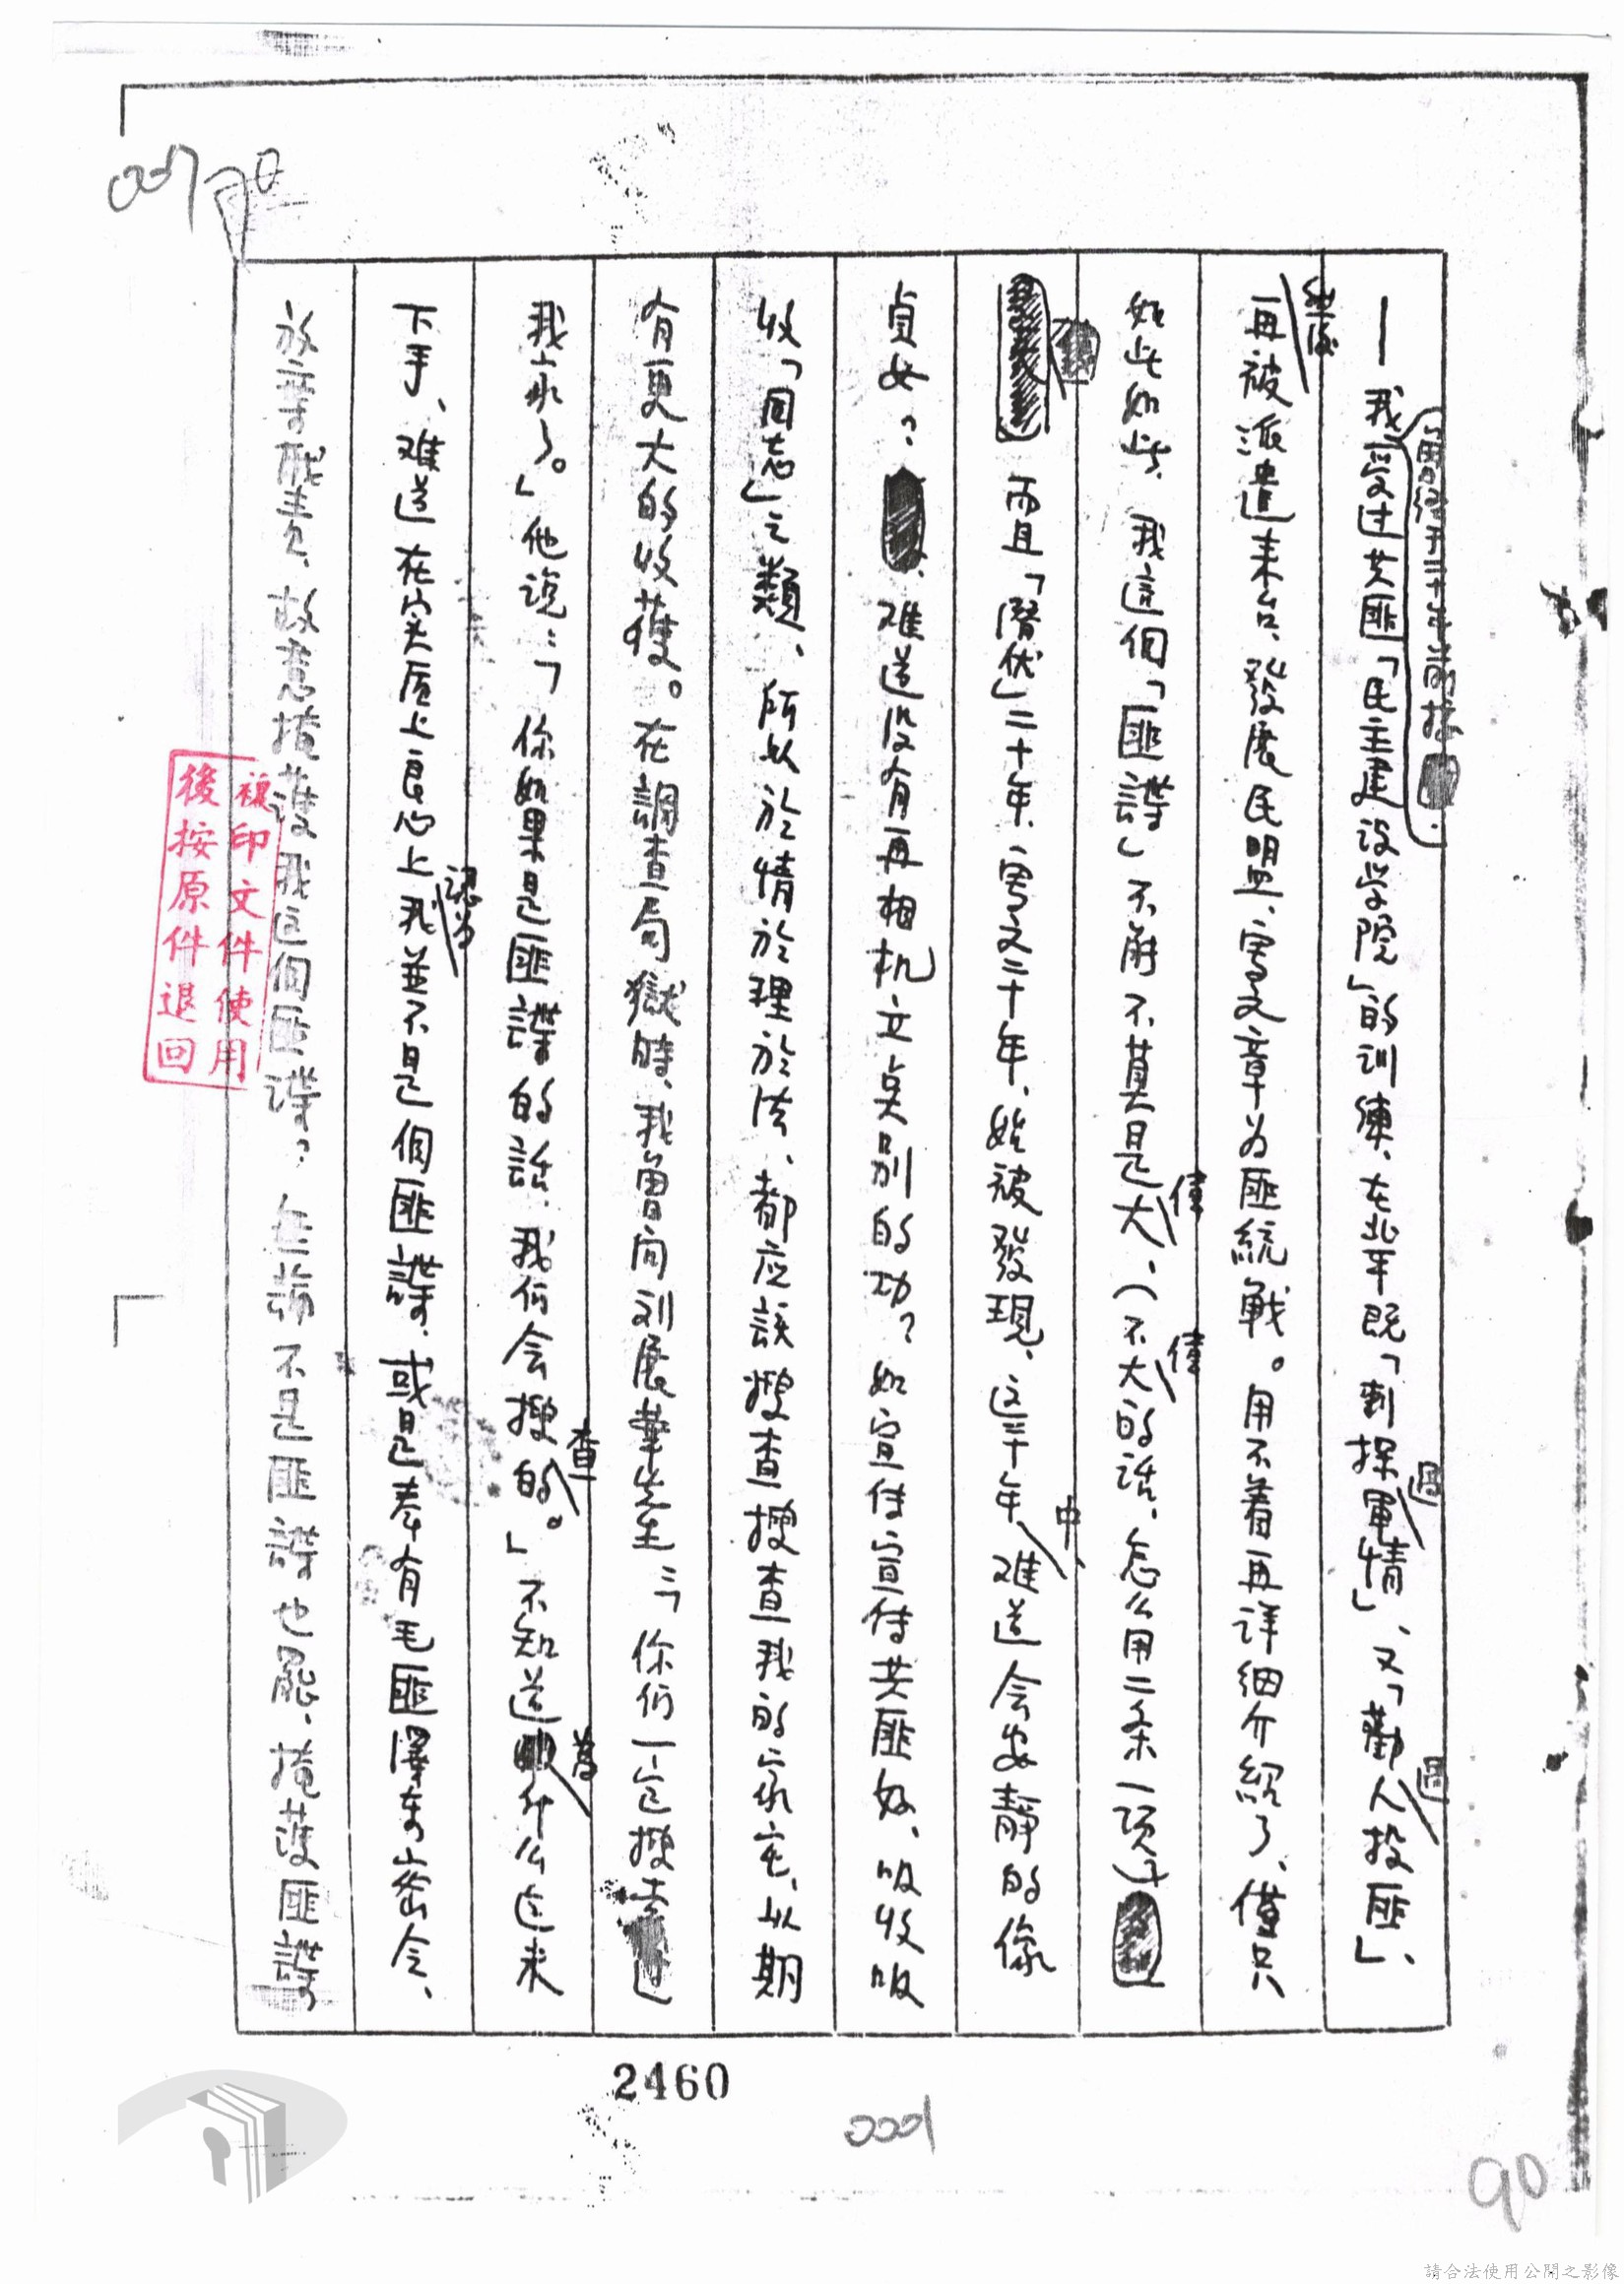 曾經于二十年前接
——我受过共匪「民主建设学院」的训練、在北平既「刺探過軍情」、又「勸人過投匪」、
然後再被派遣来台、發展民盟、寫文章为匪統戰。用不着再详细介紹了、僅只
如此如此、我這個「匪諜」不能不算是偉大、(不偉大的话、怎么用二条一項)
而且「潛伏」二十年、寫文二十年、始被發現、這二十年中、难道会安静的像
貞女？难道没有再相机立奌別的功？如宣传宣传共匪好、吸收吸
收「同志」之類、所以於情於理於法、都应該搜查搜查我的家宅、以期
有更大的收获。在調查局獄時、我曾问刘展華先生：「你们一定搜查过
我家了。」他说：「你如果是匪諜的話、我们会搜查的。」不知道為什么这来
下手、难道在实质上良心上認为我並不是個匪諜、或是奉有毛匪澤东密令、
放棄職責、故意掩護我这個匪諜？無論不是匪諜也罷、掩護匪諜
複印文件使用
後按原件退回
2460
0001
90
請合法使用公開之影像